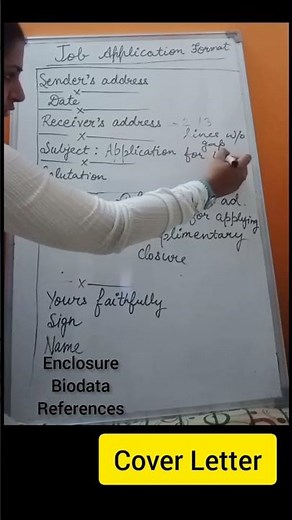 Job Application Format
Sender's address
x
Date
x
Receiver's address - 2, 3
x lines w/o
gap
Subject: Application for
x
Salutation
ad.
for applying
plimentary
closure
- x
Yours faithfully
Sign
Name
Enclosure
Biodata
References
Cover Letter